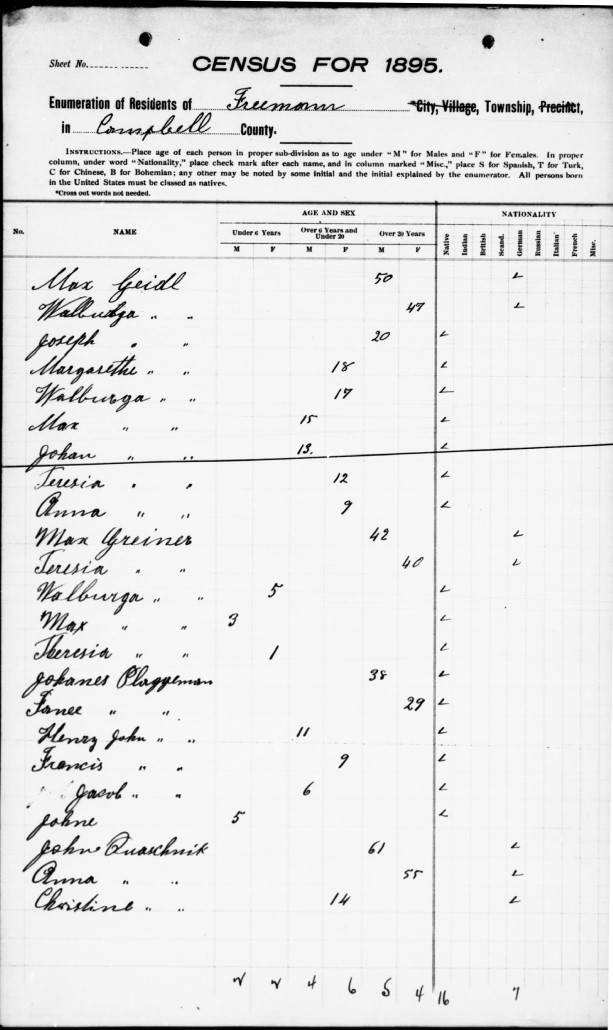 Sheet No.
CENSUS FOR 1895.
Enumeration of Residents of Freemann *City, Village, Township, Precinct,
in Campbell County.
INSTRUCTIONS.—Place age of each person in proper sub-division as to age under "M" for Males and "F" for Females. In proper
column, under word "Nationality," place check mark after each name, and in column marked "Misc.," place S for Spanish, T for Turk,
C for Chinese, B for Bohemian; any other may be noted by some initial and the initial explained by the enumerator. All persons born
in the United States must be classed as natives.
*Cross out words not needed.
AGE AND SEX NATIONALITY
No. NAME Under 6 Years Over 6 Years and Under 20 Over 20 Years Native Indian British Scand. German Russian Italian French Misc.
M F M F M F
Max Geidl 50 ✓
Walbudga " " 47 ✓
Joseph " " 20 ✓
Margarethe " " 18 ✓
Walburga " " 17 ✓
Max " " 15 ✓
Johan " " 13. ✓
Teresia " " 12 ✓
Anna " " 9 ✓
Max Greiner 42 ✓
Teresia " " 40 ✓
Walburga " " 5 ✓
Max " " 3 ✓
Theresia " " 1 ✓
Johanes Plaggeman 38 ✓
Fanee " " 29 ✓
Henry John " " 11 ✓
Francis " " 9 ✓
Jacob " " 6 ✓
Johne 5 ✓
John Quaschnik 61 ✓
Anna " " 55 ✓
Christine " " 14 ✓
2 2 4 6 5 4 16 7